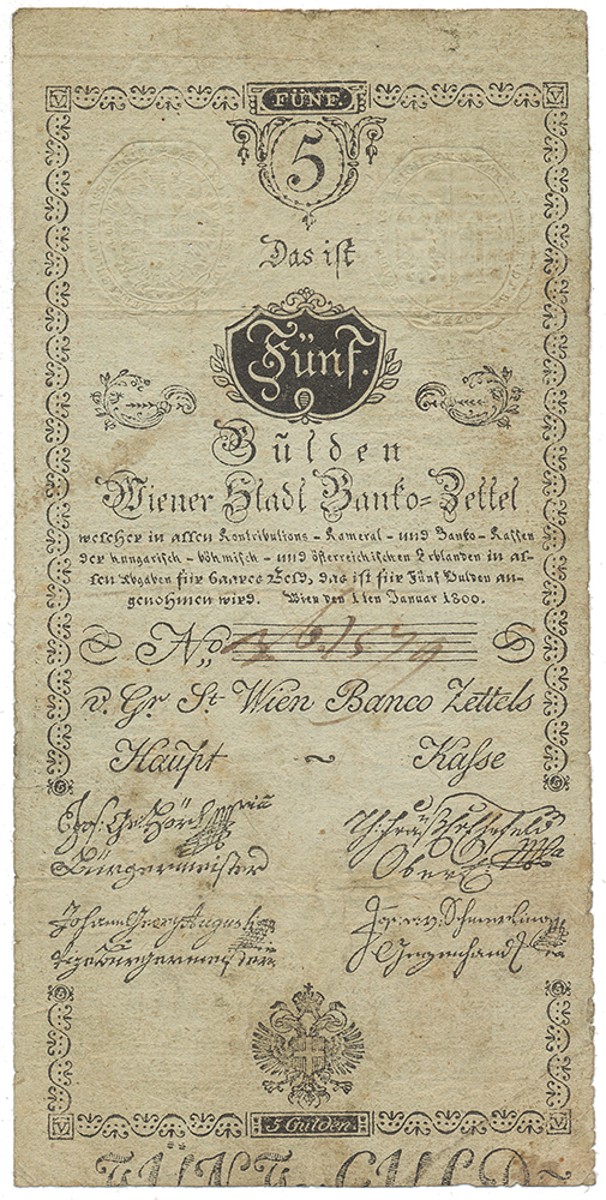 V FÜNF. V
5
Das ist
Fünf.
Gulden
Wiener Stadt Banko-Zettel
welcher in allen Kontributions - Kameral - und Banko - Kassen
der hungarisch - böhmisch - und österreichischen Erblanden in al-
len Abgaben für baares Geld, das ist für Fünf Gulden an-
genohmen wird. Wien den 1ten Januar 1800.
No
v. Gr. St. Wien Banco Zettels
Haupt ~ Kasse
5 5
Bürgermeister
Johann Georg Augusti Jos. v. v. Schmerling
Vizebürgermeister Gegenhand
5 5
V 5 Gulden. V
FÜNF GULD